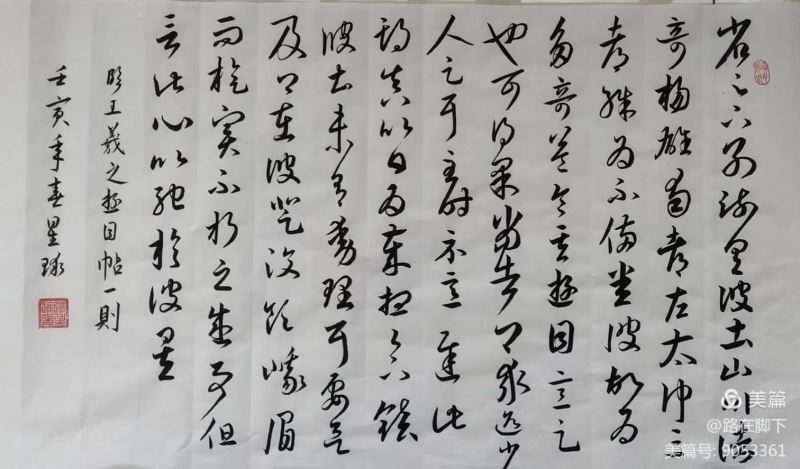 省足下別疏具彼土山川諸
奇揚雄蜀都左太沖三
都殊為不備悉彼故為
多奇益令其遊目意足
也可得果當告卿求迎少
人足耳至時示意遲此
期真以日為歲想足下鎮
彼土未有動理耳要欲
及卿在彼登汶領峨眉
而旋實不朽之盛事但
言此心以馳於彼矣
臨王羲之遊目帖一則
壬寅年春星球
美篇
@路在脚下
美篇号: 9053361